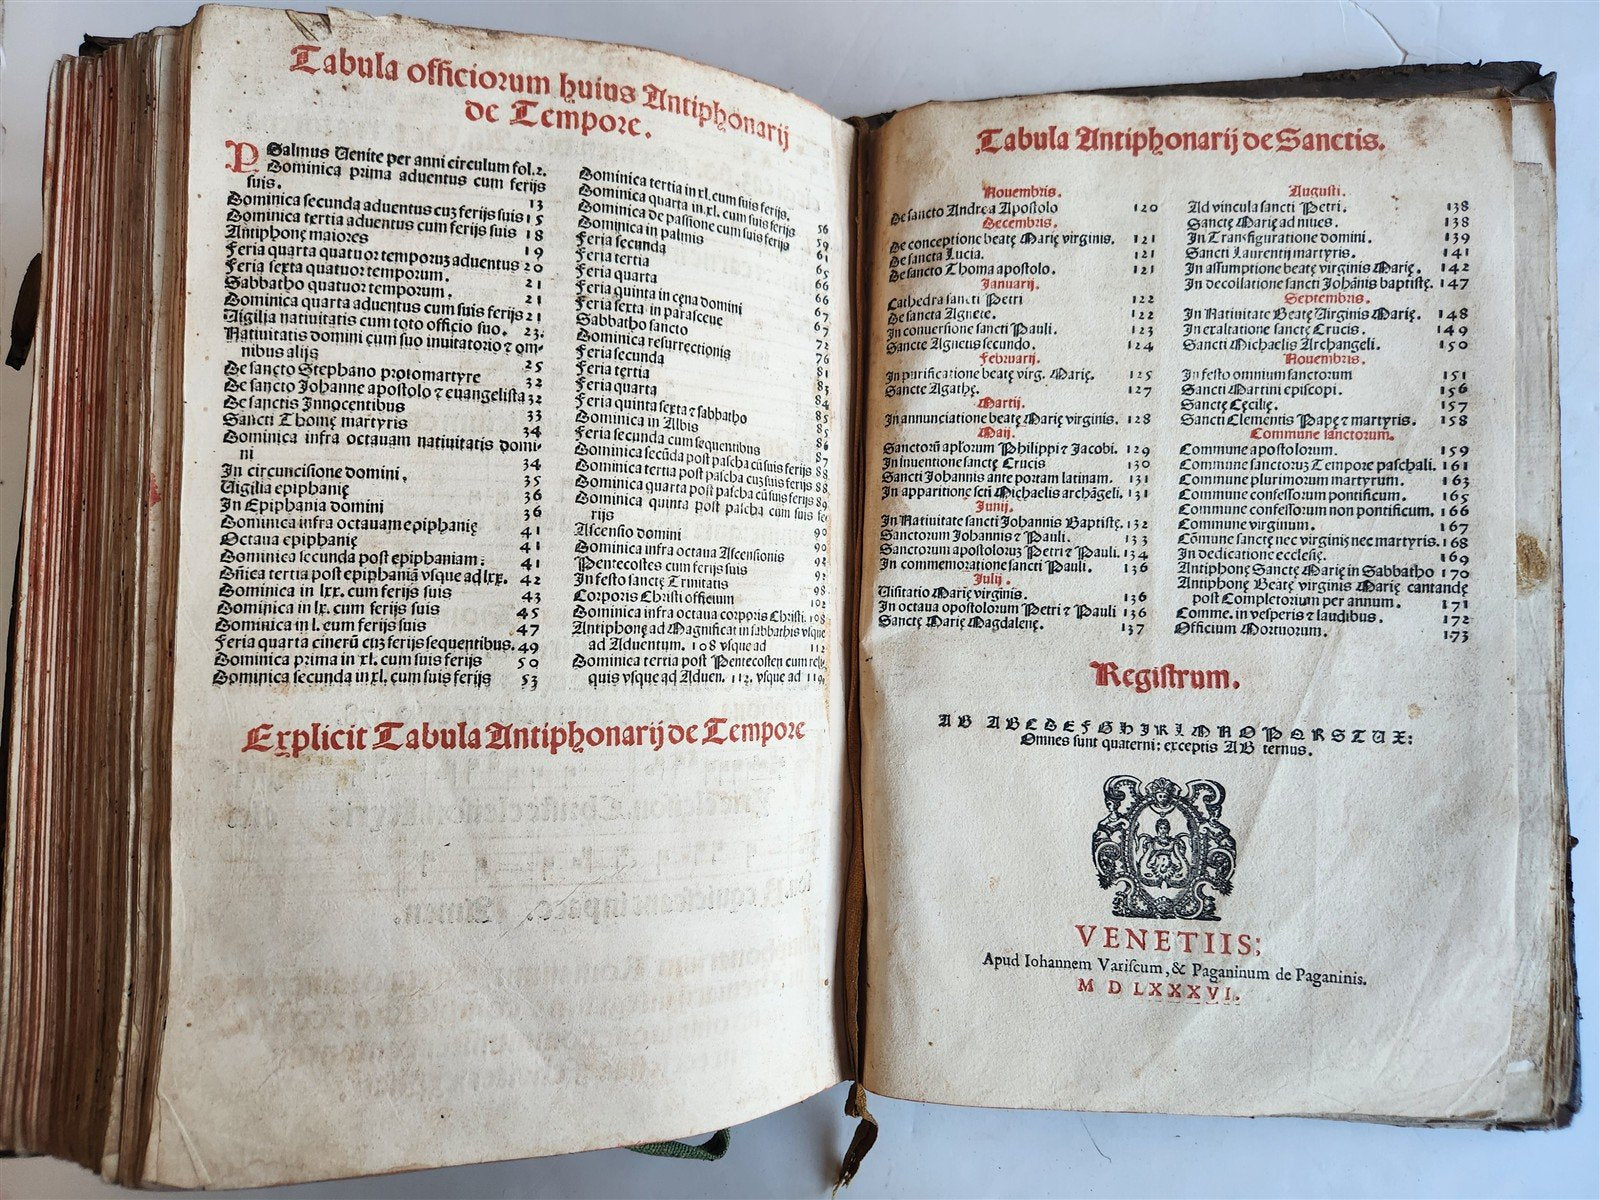 Tabula officiorum huius Antiphonarij
de Tempore.
PSalmus Uenite per anni circulum fol.2.
Dominica prima aduentus cum ferijs
suis. 13
Dominica secunda aduentus cuz ferijs suis 15
Dominica tertia aduentus cum ferijs suis 18
Antiphone maiores 19
Feria quarta quatuor temporuz aduentus 20
Feria sexta quatuor temporum. 21
Sabbatho quatuor temporum. 21
Dominica quarta aduentus cum suis ferijs 21
Uigilia natiuitatis cum toto officio suo. 23.
Natiuitatis domini cum suo inuitatorio ⁊ om-
nibus alijs 25
De sancto Stephano protomartyre 32
De sancto Iohanne apostolo ⁊ euangelista 32
De sanctis Innocentibus 33
Sancti Thomę martyris 34
Dominica infra octauam natiuitatis domi-
ni 34
In circuncisione domini. 35
Uigilia epiphanię 36
In Epiphania domini 36
Dominica infra octauam epiphanię 41
Octaua epiphanię 41
Dominica secunda post epiphaniam: 41
Dñica tertia post epiphaniã vsque ad lxx. 42
Dominica in lxx. cum ferijs suis 43
Dominica in lx. cum ferijs suis 45
Dominica in l. eum ferijs suis 47
Feria quarta cinerũ cuz ferijs sequentibus. 49
Dominica prima in xl. cum suis ferijs 50
Dominica secunda in xl. cum suis ferijs 53
Dominica tertia in xl. cum suis ferijs. 56
Dominica quarta in xl. cum suis ferijs 59
Dominica de passione cum suis ferijs 61
Dominica in palmis 65
Feria secunda 66
Feria tertia 66
Feria quarta 67
Feria quinta in cęna domini 67
Feria sexta in parasceue 72
Sabbatho sancto 76
Dominica resurrectionis 81
Feria secunda 83
Feria tertia 84
Feria quarta 85
Feria quinta sexta ⁊ sabbatho 85
Dominica in Albis 86
Feria secunda cum sequentibus 87
Dominica secũda post pascha cũ suis ferijs 88
Dominica tertia post pascha cuz suis ferijs 88
Dominica quarta post pascha cũ suis ferijs 89
Dominica quinta post pascha cum suis fe
rijs 90
Ascensio domini 90
Dominica infra octaua Ascensionis 92
Pentecostes cum ferijs suis 92
In festo sanctę Trinitatis 98
Corporis Christi officium 102
Dominica infra octaua corporis Christi. 108
Antiphonę ad Magnificat in sabbathis vsque
ad Aduentum. 108 vsque ad 112
Dominica tertia post Pentecosten cum reli
quis vsque ad Aduen. 112. vsque ad 119
Explicit Tabula Antiphonarij de Tempore
Tabula Antiphonarij de Sanctis.
Nouembris.
De sancto Andrea Apostolo 120
Decembris.
De conceptione beatę Marię virginis. 121
De sancta Lucia. 121
De sancto Thoma apostolo. 121
Ianuarij.
Cathedra sancti Petri 122
De sancta Agnete. 122
In conuersione sancti Pauli. 123
Sancte Agnetis secundo. 124
Februarij.
In purificatione beatę virg. Marię. 125
Sancte Agathę. 127
Martij.
In annunciatione beatę Marię virginis. 128
Maij.
Sanctorũ apľorum Philippi ⁊ Jacobi. 129
In inuentione sanctę Crucis 130
Sancti Johannis ante portam latinam. 131
In apparitione scti Michaelis archãgeli. 131
Junij.
In Natiuitate sancti Johannis Baptistę. 132
Sanctorum Johannis ⁊ Pauli. 133
Sanctorum apostoloruz Petri ⁊ Pauli. 134
In commemoratione sancti Pauli. 136
Julij.
Uisitatio Marię virginis. 136
In octaua opostolorum Petri ⁊ Pauli 136
Sanctę Marię Magdalenę. 137
Augusti.
Ad vincula sancti Petri. 138
Sanctę Marię ad niues. 138
In Transfiguratione domini. 139
Sancti Laurentij martyris. 141
In assumptione beatę virginis Marię. 142
In decollatione sancti Johãnis baptistę. 147
Septembris.
In Natiuitate Beatę Uirginis Marię. 148
In exaltatione sanctę Crucis. 149
Sancti Michaelis Archangeli. 150
Nouembris.
In festo omnium sanctorum 151
Sancti Martini episcopi. 156
Sanctę Cęcilię. 157
Sancti Clementis Papę ⁊ martyris. 158
Commune sanctorum.
Commune apostolorum. 159
Commune sanctoruz Tempore paschali. 161
Commune plurimorum martyrum. 163
Commune confessorum pontificum. 165
Commune confessorum non pontificum. 166
Commune virginum. 167
Cõmune sanctę nec virginis nec martyris. 168
In dedicatione ecclesię. 169
Antiphonę Sanctę Marię in Sabbatho 170
Antiphonę Beatę virginis Marię cantandę
post Completorium per annum. 171
Comme. in vesperis ⁊ laudibus. 172
Officium Mortuorum. 173
Registrum.
AB ABCDEFGHIKLMNOPQRSTUX:
Omnes sunt quaterni: exceptis AB ternus.
VENETIIS;
Apud Iohannem Variscum, & Paganinum de Paganinis.
M D LXXXVI.